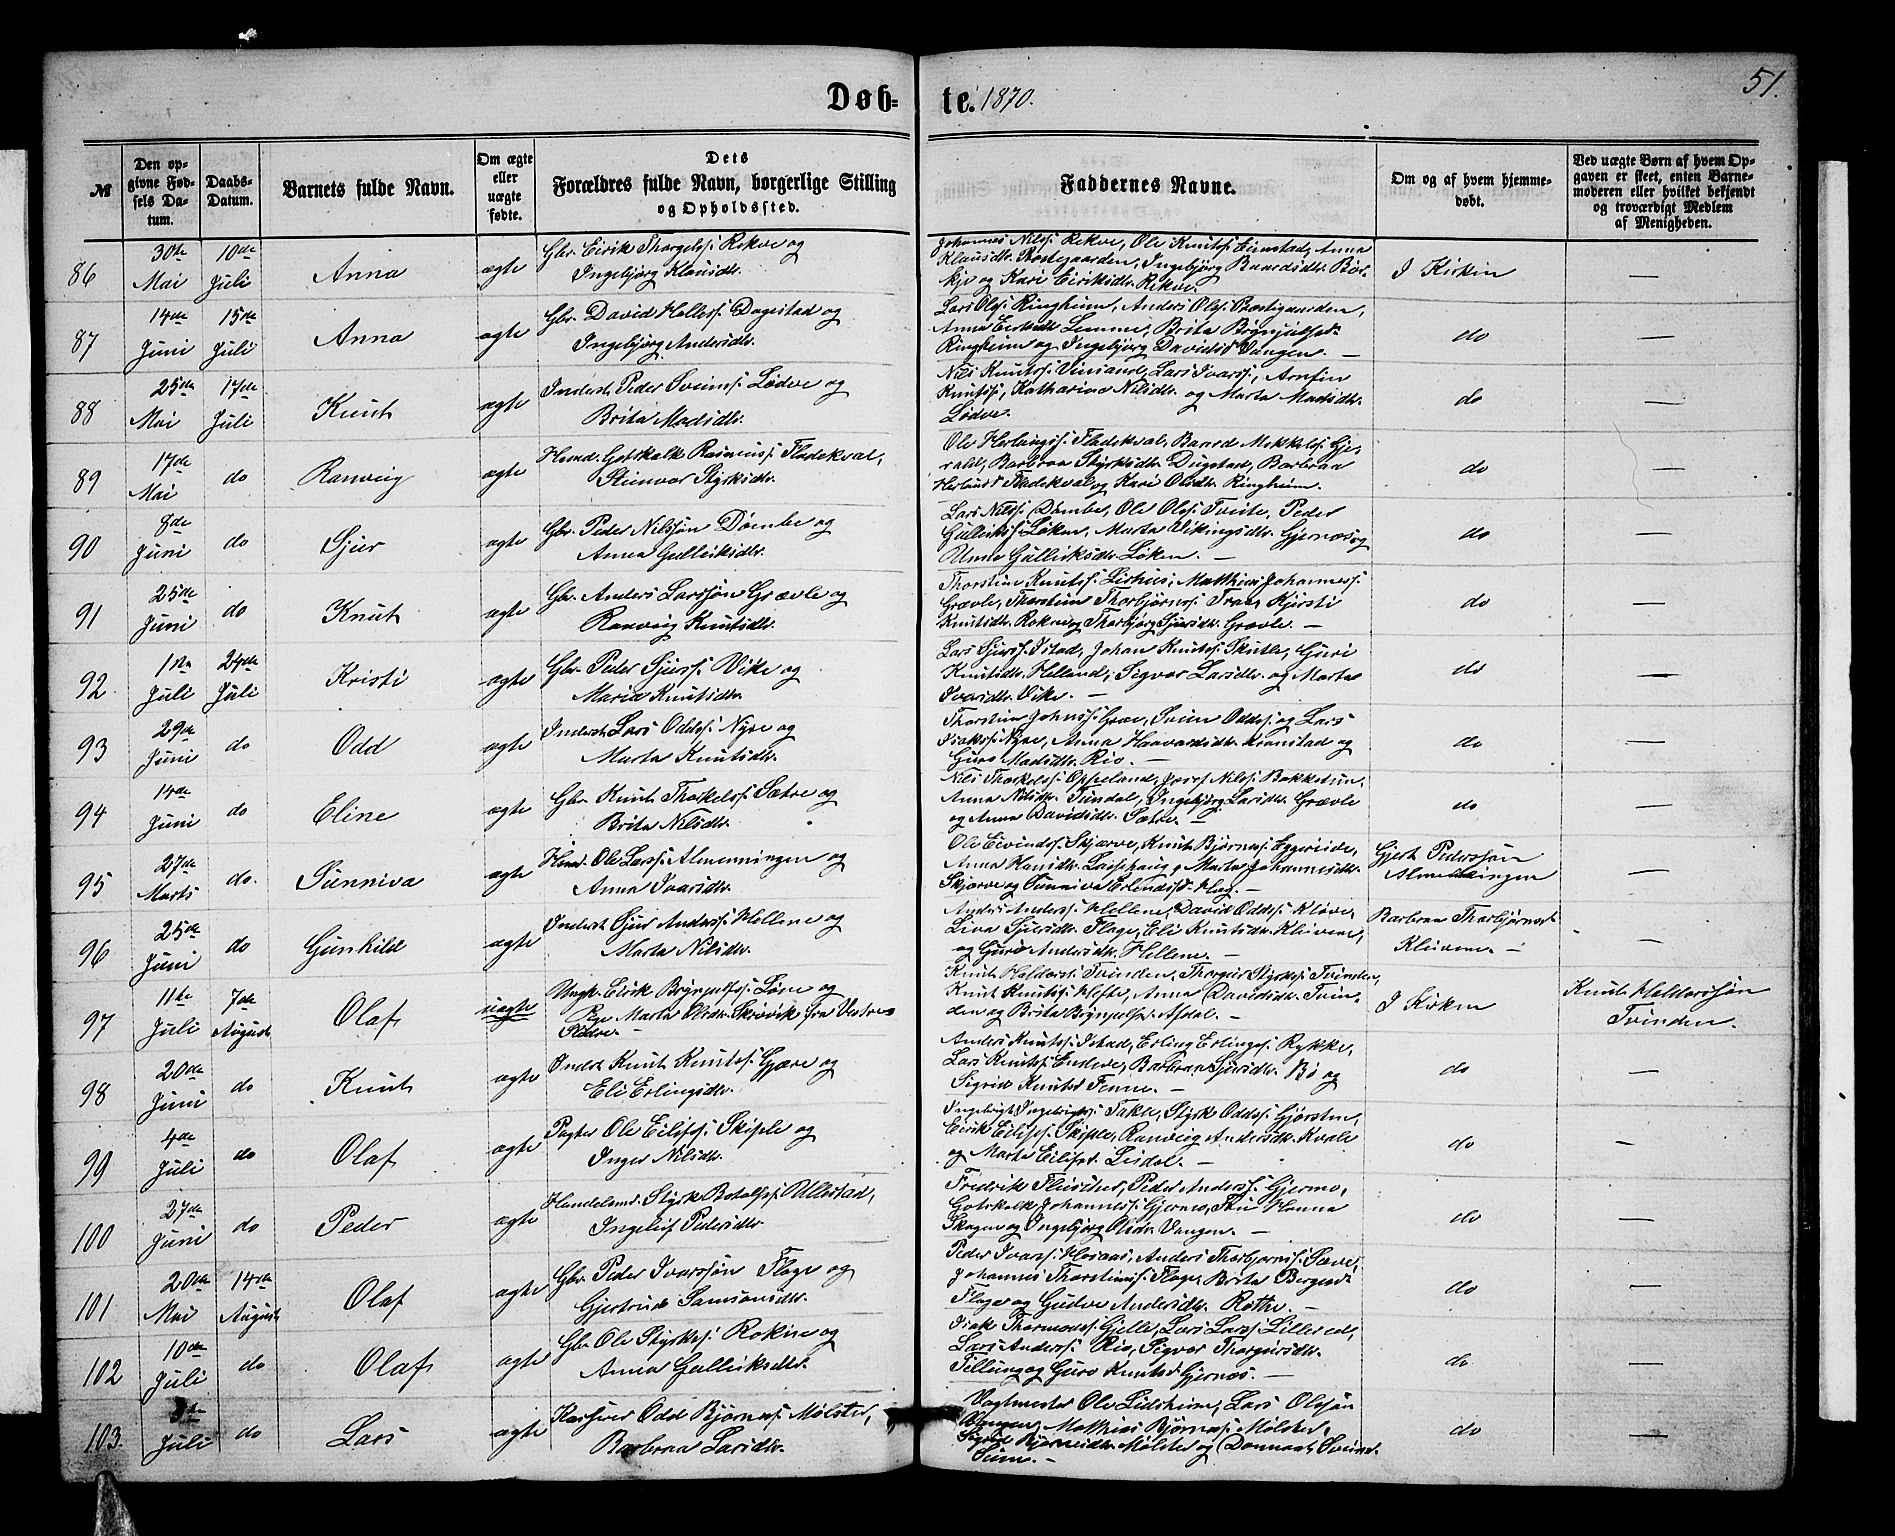 Døb-
te. 1870.
51.
№
Den op-
givne Fød-
sels Da-
tum.
Daabs-
Datum.
Barnets fulde Navn.
Om ægte
eller
uægte
fødte.
Dets
Forældres fulde Navn, borgerlige Stilling
og Opholdssted.
Faddernes Navne.
Om og af hvem hjemme-
døbt.
Ved uægte Børn af hvem Op-
gaven er skeet, enten Barne-
moderen eller hvilket bekjendt
og troværdigt Medlem
af Menigheden.
86
30te
Mai
10de
Juli
Anna
ægte
Gbr. Eirik Thorgelss. Rekve og
Ingebjørg Klausdtr.
Johannes Nilss. Rekve, Ole Knutss. Finnstad, Anna
Klausdtr. Rostegaarden, Ingebjørg Baardsdtr. Bør-
kje og Kari Eiriksdtr. Rekve.
I Kirken
—
87
14de
Juni
15de
Juli
Anna
ægte
Gbr. David Helless. Dagestad og
Ingebjørg Andersdtr.
Lars Olss. Ringheim, Anders Olss. Præstegaarden,
Anna Eiriksdtr. Lemme, Brita Brynjulfsd.
Ringheim og Ingebjørg Davidsd. Vangen. —
do
—
88
25de
Mai
17de
Juli
Knut
ægte
Inderst Peder Sveinss. Lødve og
Brita Madsdtr.
Nils Knutss. Vinsand, Lars Ivarss., Arnfin
Knutss., Katharina Nilsdtr. og Marta Madsdtr.
Lødve.
do
—
89
17de
Mai
do
Ranveig
ægte
Huusmd. Gotskalk Rasmuss. Fladekval,
Steinvor Styrksdtr.
Ole Herlaugss. Fladekval, Baard Mikkelss. Gje-
rald, Barbroa Styrksdtr. Dugstad, Barbroa
Herlausd. Fladekval og Kari Olsdtr. Ringheim.
do
—
90
8de
Juni
do
Sjur
ægte
Gbr. Peder Nilssøn Dømbe og
Anna Gulleiksdtr.
Lars Nilss. Dømbe, Ole Olss. Tveite, Peder
Gulleikss. Løken, Marta Vikingsdtr. Gjernæs og
Anna Gulleiksdtr. Løken. —
do
—
91
25de
Juni
do
Knut
ægte
Gbr. Anders Larssøn Grævle og
Ranveig Knutsdtr.
Thorstein Knutss. Lirhus, Mathias Johanness.
Grævle, Thorstein Thorbjørnss. Træe, Kjersti
Knutsdtr. Rokne og Thorbjørg Sjursdtr. Grævle. —
do
—
92
1ste
Juli
24de
Juli
Kristi
ægte
Gbr. Peder Sjurss. Vike og
Maria Knutsdtr.
Lars Sjurss. Istad, Johan Knutss. Skutle, Guri
Knutsdtr. Helland, Sigvor Larsdtr. og Marta
Ivarsdtr. Vike. —
do
—
93
29de
Juni
do
Odd
ægte
Inderst Lars Oddss. Nyre og
Marta Knutsdtr.
Thorstein Johnss. Græe, Svein Oddss. og Lars
Isakss. Nyre, Anna Haavardsdtr. Kronstad og
Guro Madsdtr. Rio. —
do
—
94
14de
Juni
do
Eline
ægte
Gbr. Knut Thorkelss. Sætre og
Brita Nilsdtr.
Nils Thorkelss. Oppeland, Josef Nilss. Bakketun,
Anna Nilsdtr. Tundal, Ingebjørg Larsdtr. Grævle
og Anna Davidsdtr. Sætre. —
do
—
95
27de
Marts
do.
Sunniva
ægte
Huusmd. Ole Larss. Almenningen og
Anna Ivarsdtr.
Ole Eivindss. Skjerve, Knut Bjørnss. Eggereide,
Anna Hansdtr. Lassehaug, Marta Johannesdtr.
Skjerve og Sunniva Erlendsd. Hag. —
Gjert Pederssøn
Almenningen
—
96
25de
Juni
do
Gunhild
ægte
Inderst Sjur Anderss. Hellene og
Marta Nilsdtr.
Anders Anderss. Hellene, David Oddss. Kløve,
Liva Sjursdtr. Flage, Eli Knutsdtr. Kleivene,
og Guro Andersdtr. Hellene. —
Barbroa Thorbjørnsd.
Kleivene. —
—
97
11te
Juli
7de
August
Olaf
uægte
Ungk. Eirik Brynjulfss. Løne og
Pige Marta Olsdtr. Skrovik, fra Vestre
Slidre. —
Knut Heldorss. Tvinden, Thorgeir Styrkss. Tvinden,
Knut Knutss. Hefte, Anna Davidsdtr. Tvin-
den og Brita Brynjulfsd. Afdal. —
I Kirken
Knut Heldorssøn
Tvinden.
98
20de
Juni
do
Knut
ægte
Inderst Knut Knutss. Gjære og
Eli Erlingsdtr.
Anders Knutss. Istad, Erling Erlingss. Rykke,
Lars Knutss. Endeve, Barbroa Sjursdtr. Bø og
Sigrid Knutsd. Fenne. —
do
—
99
4de
Juli
do
Olaf
ægte
Pagter Ole Eilifss. Skiple og
Inger Nilsdtr.
Ingebrigt Ingebrigtss. Takle, Styrk Oddss. Gjørstein,
Eirik Eilifss. Skiple, Ranveig Andersdtr. Kvale
og Marta Eilifsd. Lisdal. —
do
—
100
27de
Juni
do
Peder
ægte
Handelsmd. Styrk Botolfss. Ullestad,
Ingeleif Pedersdtr.
Fredrik Fleischer, Peder Anderss. Gjerme,
Gotskalk Johanness. Gjernes, Fru Hanna
Skogen og Ingebjørg Olsdtr. Vangen. —
do
—
101
20de
Mai
14de
August
Olaf
ægte
Gbr. Peder Ivarssøn Flage og
Gjertrud Samsonsdtr.
Peder Ivarss. Hosaas, Anders Thorbjørnss. Sæve,
Johannes Thorsteinss. Flage, Brita Bergesd.
Flage og Gudve Andersdtr. Rothe. —
do
—
102
10de
Juli
do
Olaf
ægte
Gbr. Ole Styrkss. Rokne og
Anna Gulleiksdtr.
Isak Thormodss. Gjelle, Lars Larss. Lillered,
Lars Anderss. Rio, Sigvor Thorgeirsdtr.
Tillung og Guro Knutsd. Gjernæs. —
do
—
103.
3de
Juli
do
Lars
ægte
Kasserer Odd Bjørnss. Mølster,
Barbroa Larsdtr.
Vagtmester Ole Lidsheim, Lars Olssøn
Vangen, Mathias Bjørnss. Mølster,
Sigrid Bjørnsdtr. Mølster og
do
—